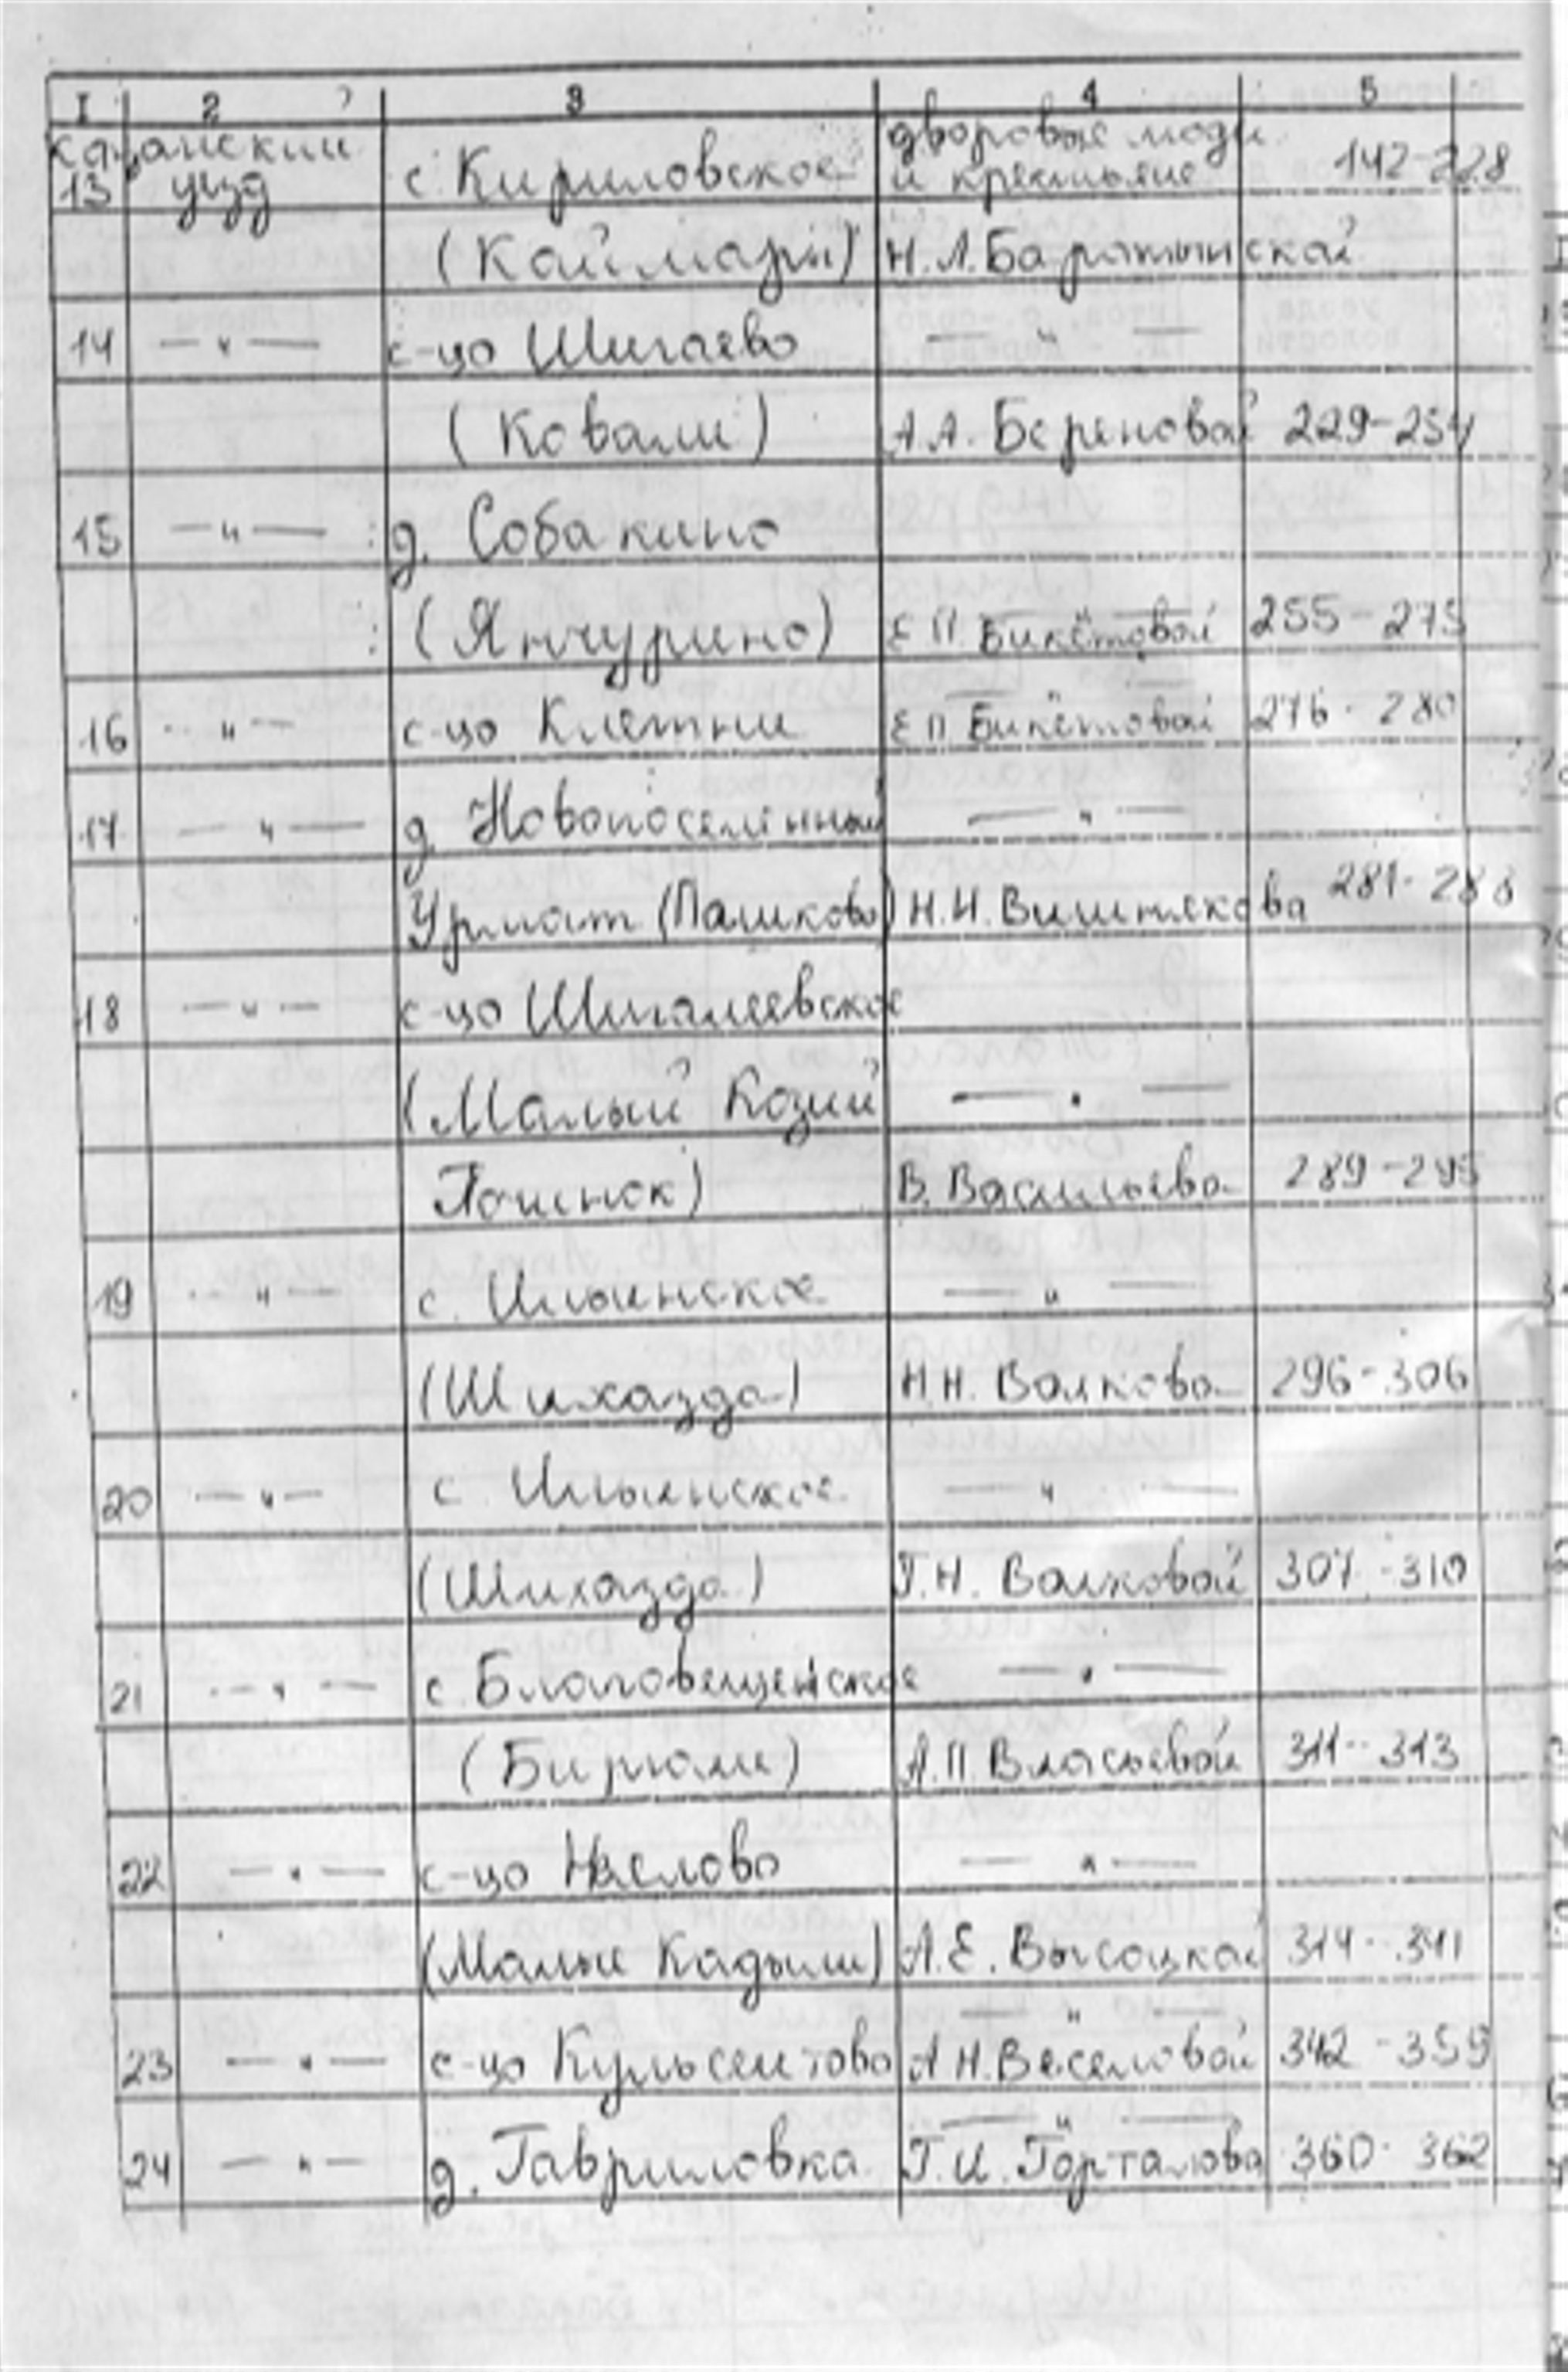 I 2 3 4 5
Казанский дворовые люди
13 уезд с. Кириловское и крестьяне 142-228
(Каймары) Н.Л. Баратынской
14 —"— с-цо Шигаево —"—
(Ковали) А.А. Береновой 229-254
15 —"— д. Собакино
(Янчурино) Е П. Бикетовой 255-275
—"—
16 —"— с-цо Клетни Е П Бикетовой 276-280
17 —"— д. Новопоселенный —"—
Урмат (Пашково) Н.Н. Вишнякова 281-288
18 —"— с-цо Шигалеевское
(Малый Козий —"—
Починок) В. Васильева 289-295
19 —"— с. Ильинское —"—
(Шихазда) Н Н. Волкова 296-306
20 —"— с Ильинское —"—
(Шихазда) Г.Н. Волковой 307-310
21 —"— с. Благовещенское —"—
(Бирюли) А.П. Власьевой 311-313
22 —"— с-цо —"—
(Малые Кадыли) А.Е. Высоцкой 314-341
—"—
23 —"— с-цо Кульсеитово А Н. Веселовой 342-359
—"—
24 —"— д. Гавриловка Г.И. Горталова 360-362